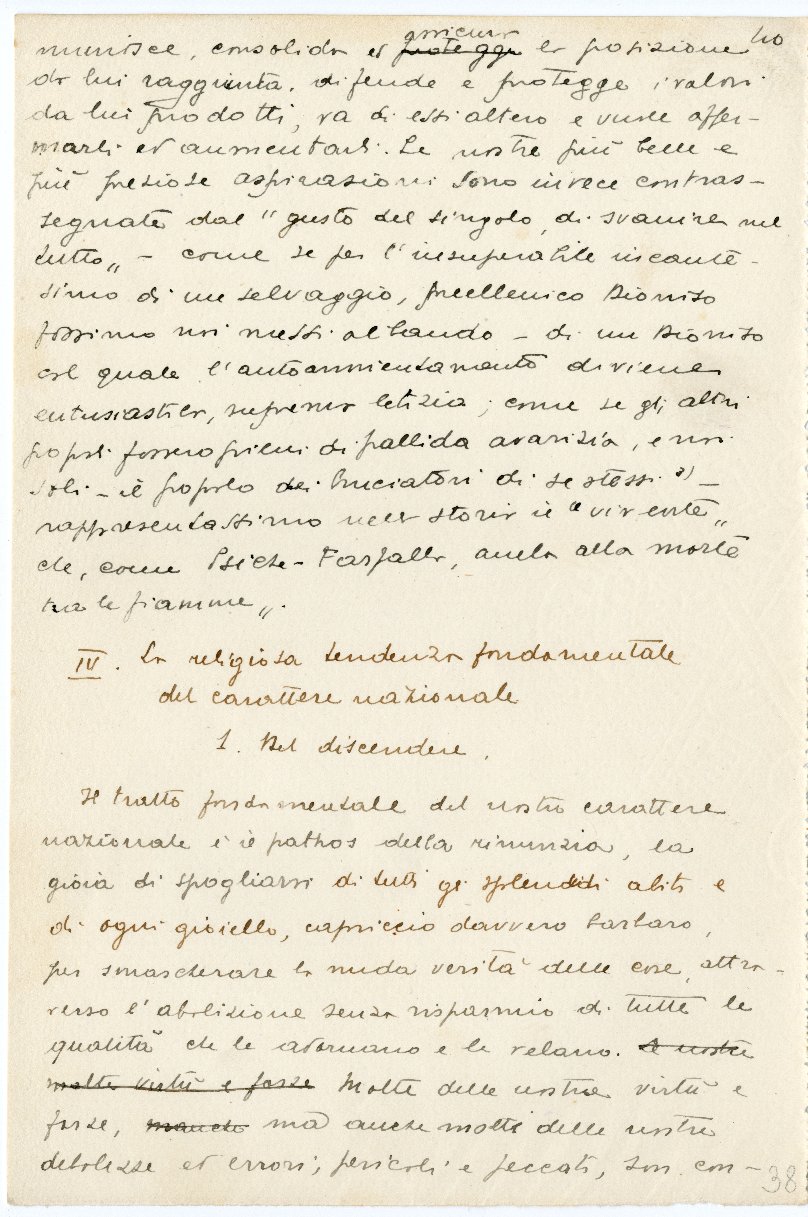 assicura 40
munisce, consolida ed protegge la posizione
da lui raggiunta, difende e protegge i valori
da lui prodotti, va di essi altero e vuole affer-
marli ed aumentarli. Le nostre più belle e
più preziose aspirazioni sono invece contras-
segnate dal "gusto del singolo di svanire nel
tutto„ - come se per l'insuperabile incante-
simo di un selvaggio, preellenico Dioniso
fossimo noi messi al bando - di un Dioniso
col quale l'autoannientamento diviene
entusiastica, suprema letizia; come se gli altri
popoli fossero pieni di pallida avarizia, e noi
soli - il popolo dei bruciatori di se stessi ²) -
rappresentassimo nella storia il "vivente„
che, come Psiche-Farfalla, anela alla morte
tra le fiamme„.
IV. La religiosa tendenza fondamentale
del carattere nazionale
1. Del discendere.
Il tratto fondamentale del nostro carattere
nazionale è il pathos della rinunzia, la
gioia di spogliarsi di tutti gli splendidi abiti e
di ogni gioiello, capriccio davvero barbaro,
per smascherare la nuda verità delle cose, attra-
verso l'abolizione senza risparmio di tutte le
qualità che le adornano e le velano. Le nostre
molte virtù e forze Molte delle nostre virtù e
forze, manche ma anche molti delle nostre
debolezze ed errori, pericoli e peccati, son con-
38